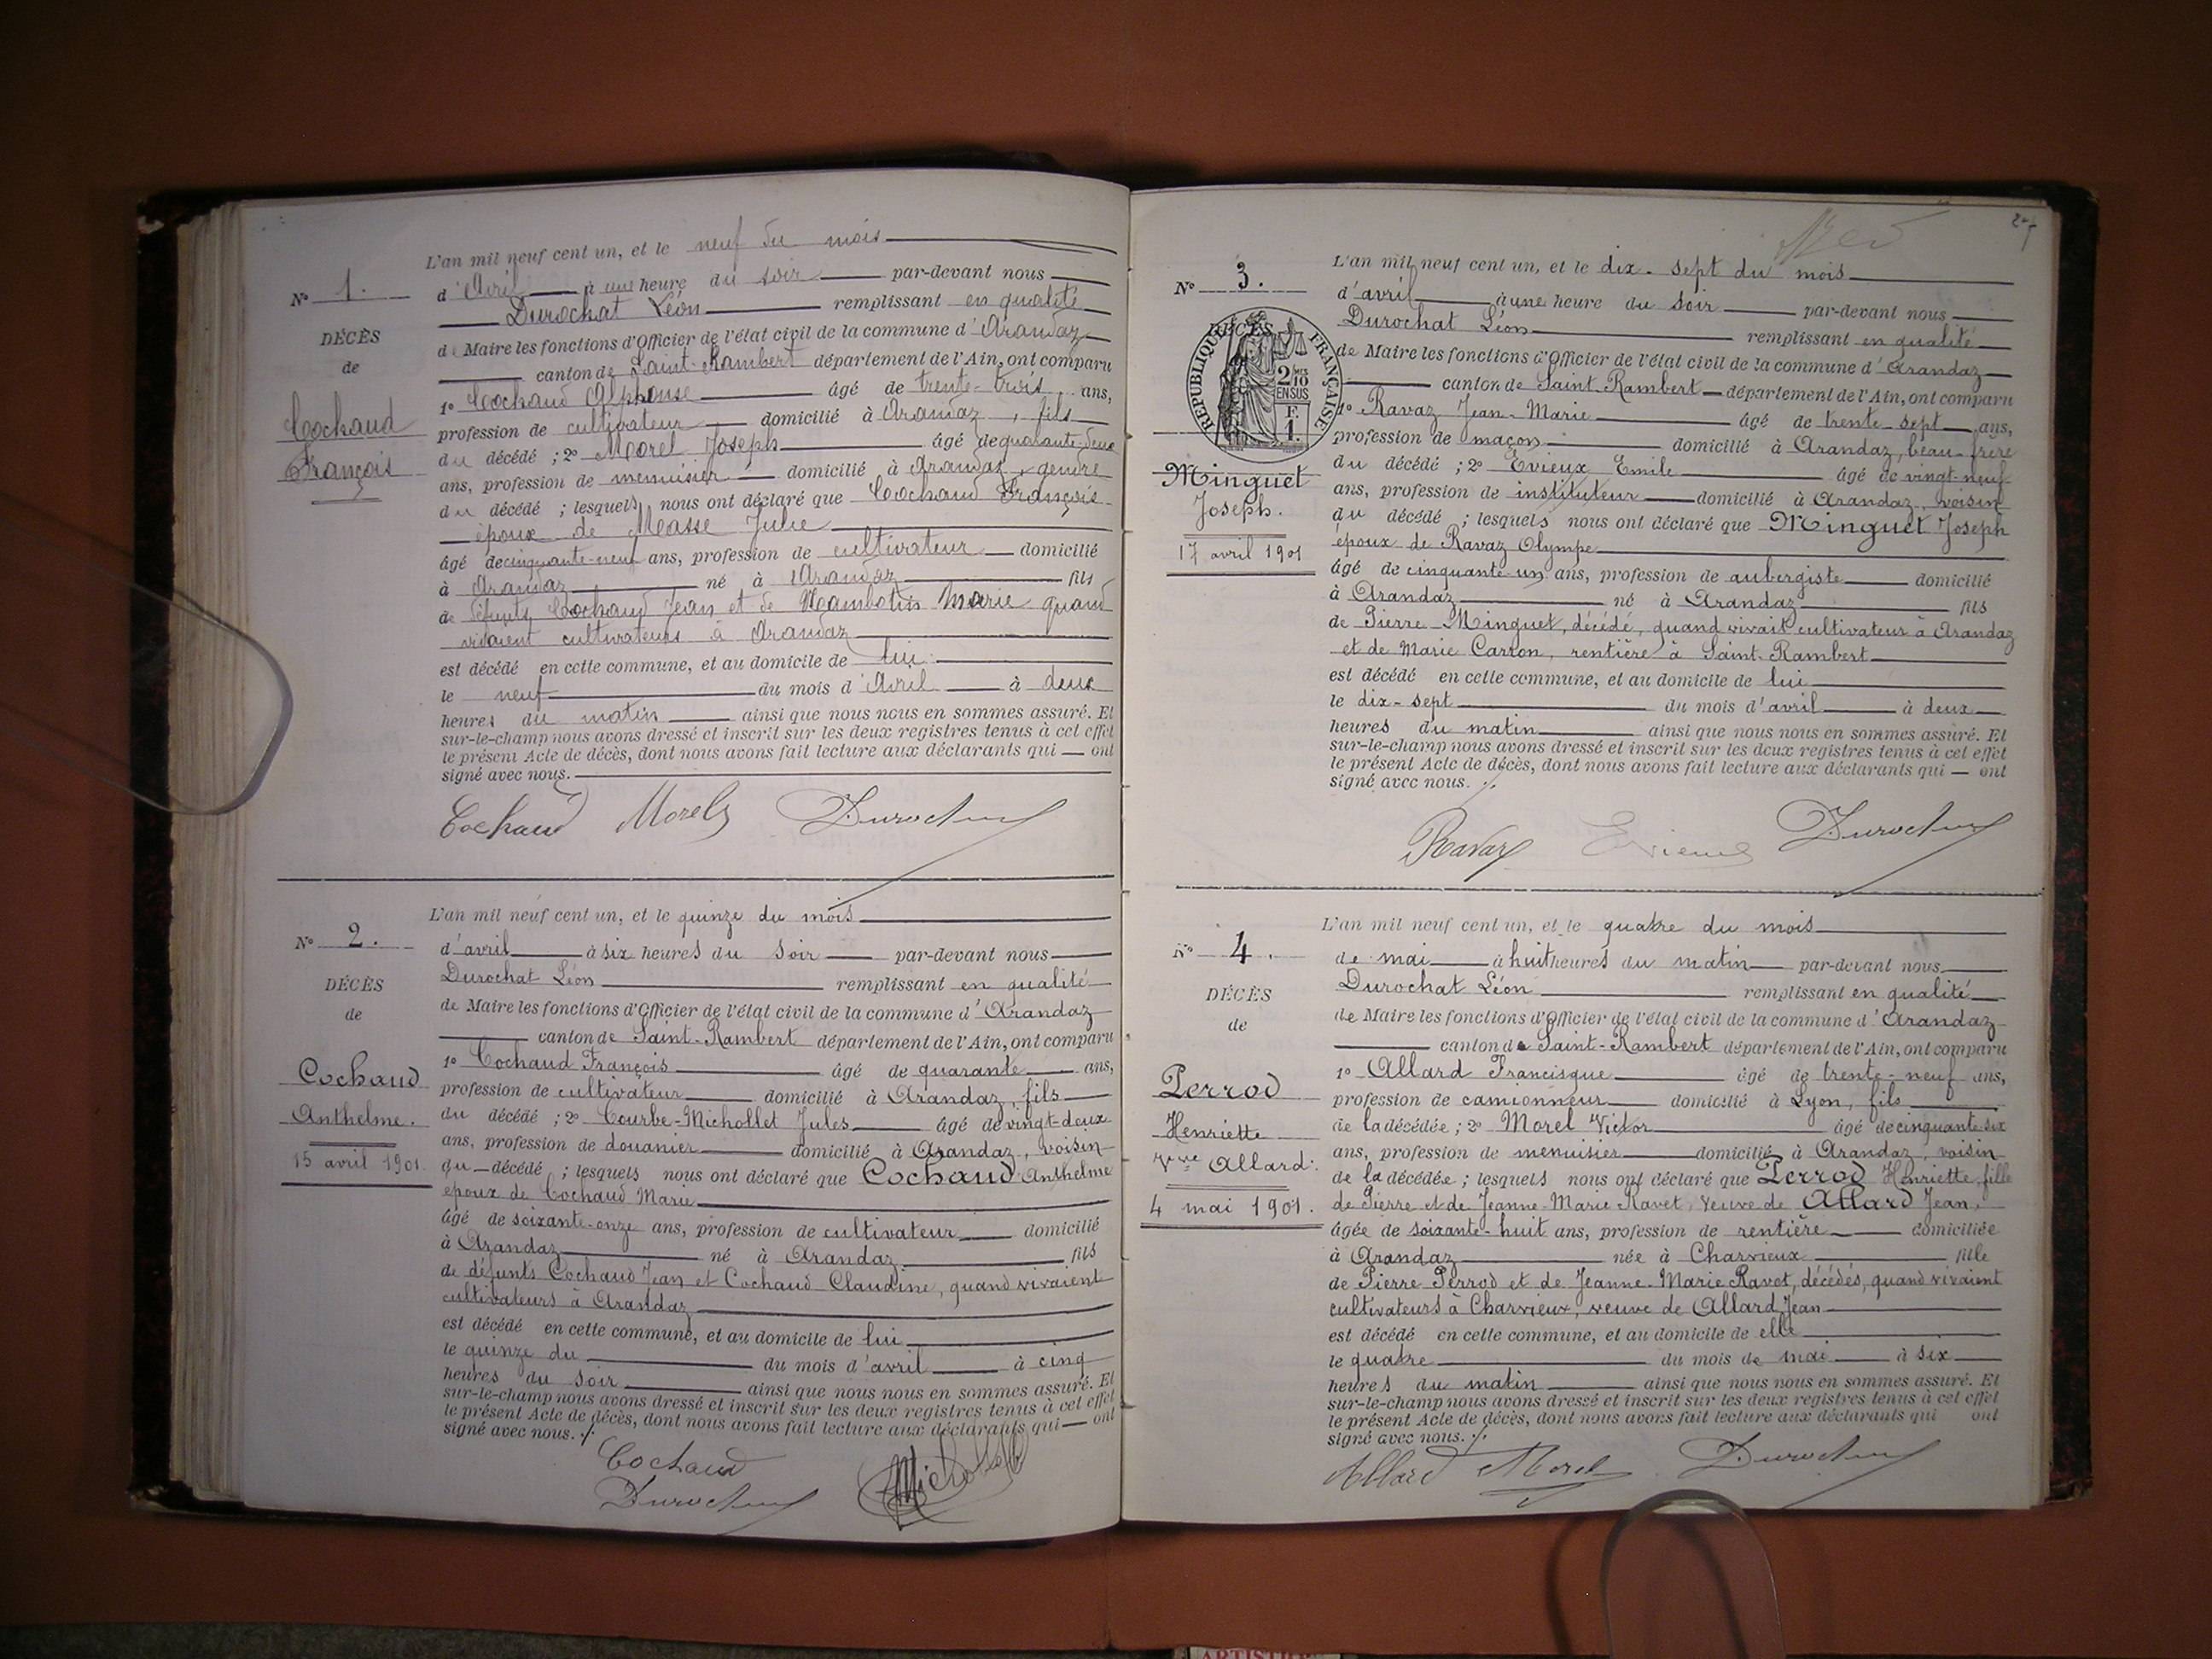 L'an mil neuf cent un, et le neuf du mois
N° 1. d'Avril à une heure du soir par-devant nous
Durochat Léon remplissant en qualité
DÉCÈS
de Maire les fonctions d'Officier de l'état civil de la commune d'Arandaz
de
canton de Saint-Rambert département de l'Ain, ont comparu
1° Cochaud Alphonse âgé de trente-trois ans,
Cochaud
profession de cultivateur domicilié à Arandaz, fils
François
du décédé ; 2° Morel Joseph âgé de quarante-deux
ans, profession de menuisier domicilié à Arandaz, gendre
du décédé ; lesquels nous ont déclaré que Cochaud François
époux de Masse Julie
âgé de cinquante-neuf ans, profession de cultivateur domicilié
à Arandaz né à Arandaz fils
de défunts Cochaud Jean et de Marie quand
vivaient cultivateurs à Arandaz
est décédé en cette commune, et au domicile de lui
le neuf du mois d'Avril à deux
heures du matin ainsi que nous nous en sommes assuré. Et
sur-le-champ nous avons dressé et inscrit sur les deux registres tenus à cet effet
le présent Acte de décès, dont nous avons fait lecture aux déclarants qui ont
signé avec nous.
Cochaud Morel Durochat
L'an mil neuf cent un, et le quinze du mois
N° 2. d'avril à six heures du soir par-devant nous
Durochat Léon remplissant en qualité
DÉCÈS
de Maire les fonctions d'Officier de l'état civil de la commune d'Arandaz
de
canton de Saint-Rambert département de l'Ain, ont comparu
1° Cochaud François âgé de quarante ans,
Cochaud
profession de cultivateur domicilié à Arandaz, fils
Anthelme.
du décédé ; 2° Courbe-Michollet Jules âgé de vingt-deux
ans, profession de douanier domicilié à Arandaz, voisin
15 avril 1901.
du décédé ; lesquels nous ont déclaré que Cochaud Anthelme
époux de Cochaud Marie
âgé de soixante-onze ans, profession de cultivateur domicilié
à Arandaz né à Arandaz fils
de défunts Cochaud Jean et Cochaud Claudine, quand vivaient
cultivateurs à Arandaz
est décédé en cette commune, et au domicile de lui
le quinze du du mois d'avril à cinq
heures du soir ainsi que nous nous en sommes assuré. Et
sur-le-champ nous avons dressé et inscrit sur les deux registres tenus à cet effet
le présent Acte de décès, dont nous avons fait lecture aux déclarants qui ont
signé avec nous. ./.
Cochaud
Durochat Michollet
L'an mil neuf cent un, et le dix-sept du mois
N° 3. d'avril à une heure du soir par-devant nous
Durochat Léon remplissant en qualité
DÉCÈS
RÉPUBLIQUE FRANÇAISE
2/10 EN SUS
F. 1.
de Maire les fonctions d'Officier de l'état civil de la commune d'Arandaz
canton de Saint-Rambert département de l'Ain, ont comparu
1° Ravaz Jean-Marie âgé de trente-sept ans,
profession de maçon domicilié à Arandaz, beau-frère
Minguet
du décédé ; 2° Evieux Emile âgé de vingt-neuf
Joseph.
ans, profession de instituteur domicilié à Arandaz, voisin
du décédé ; lesquels nous ont déclaré que Minguet Joseph
17 avril 1901
époux de Ravaz Olympe
âgé de cinquante-un ans, profession de aubergiste domicilié
à Arandaz né à Arandaz fils
de Pierre Minguet, décédé, quand vivait cultivateur à Arandaz
et de Marie Carron, rentière à Saint-Rambert
est décédé en cette commune, et au domicile de lui
le dix-sept du mois d'avril à deux
heures du matin ainsi que nous nous en sommes assuré. Et
sur-le-champ nous avons dressé et inscrit sur les deux registres tenus à cet effet
le présent Acte de décès, dont nous avons fait lecture aux déclarants qui ont
signé avec nous. ./.
Ravaz Evieux Durochat
L'an mil neuf cent un, et le quatre du mois
N° 4. de mai à huit heures du matin par-devant nous
Durochat Léon remplissant en qualité
DÉCÈS
de Maire les fonctions d'Officier de l'état civil de la commune d'Arandaz
de
canton de Saint-Rambert département de l'Ain, ont comparu
1° Allard Francisque âgé de trente-neuf ans,
Perrod
profession de camionneur domicilié à Lyon, fils
Henriette
de la décédée ; 2° Morel Victor âgé de cinquante six
Veuve Allard.
ans, profession de menuisier domicilié à Arandaz, voisin
de la décédée ; lesquels nous ont déclaré que Perrod Henriette, fille
4 mai 1901.
de Pierre et de Jeanne-Marie Ravet, Veuve de Allard Jean,
âgée de soixante-huit ans, profession de rentière domiciliée
à Arandaz née à Charvieux fille
de Pierre Perrod et de Jeanne-Marie Ravet, décédés, quand vivaient
cultivateurs à Charvieux, veuve de Allard Jean
est décédé en cette commune, et au domicile de elle
le quatre du mois de mai à six
heures du matin ainsi que nous nous en sommes assuré. Et
sur-le-champ nous avons dressé et inscrit sur les deux registres tenus à cet effet
le présent Acte de décès, dont nous avons fait lecture aux déclarants qui ont
signé avec nous. ./.
Allard Morel Durochat